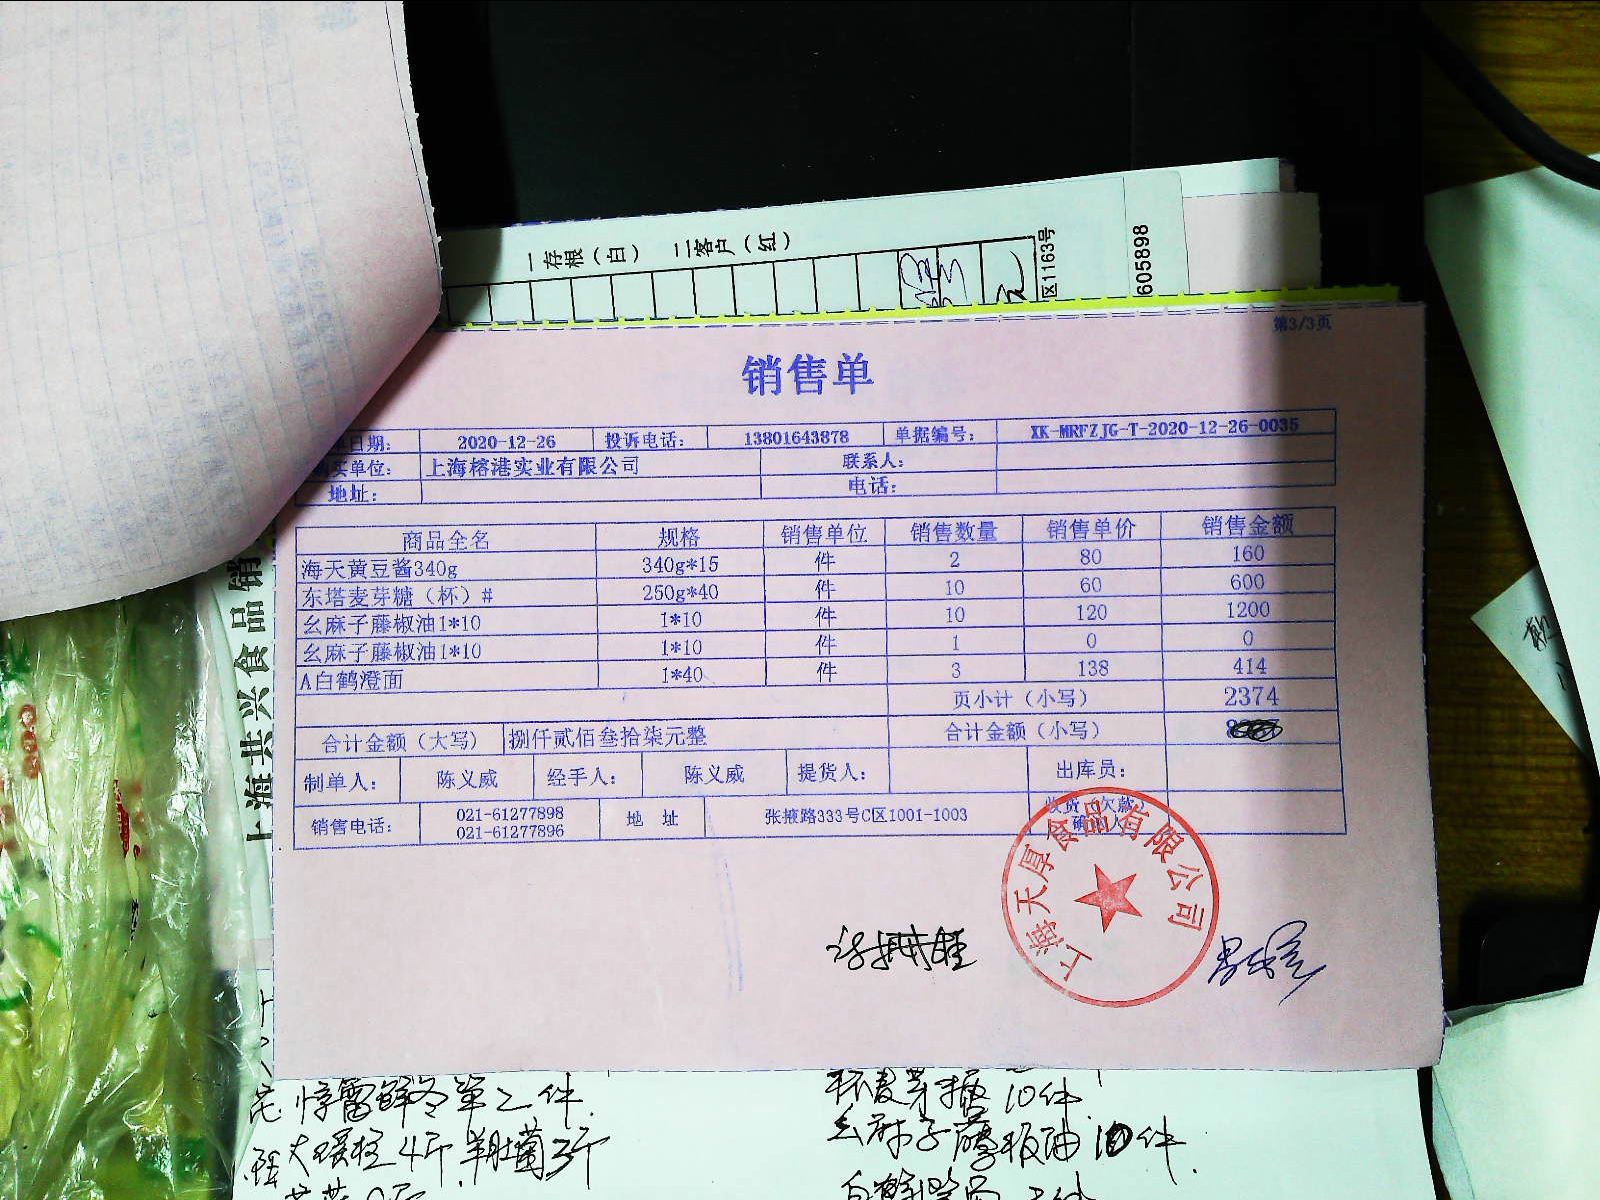 一存根（白） 二客户（红）
区1163号
605898
第3/3页
销售单
日期： 2020-12-26 投诉电话： 13801643878 单据编号： XK-MRFZJG-T-2020-12-26-0035
买单位： 上海榕港实业有限公司 联系人：
地址： 电话：
商品全名 规格 销售单位 销售数量 销售单价 销售金额
海天黄豆酱340g 340g*15 件 2 80 160
东塔麦芽糖（杯）# 250g*40 件 10 60 600
幺麻子藤椒油1*10 1*10 件 10 120 1200
幺麻子藤椒油1*10 1*10 件 1 0 0
A白鹤澄面 1*40 件 3 138 414
页小计（小写） 2374
合计金额（大写） 捌仟贰佰叁拾柒元整 合计金额（小写）
制单人： 陈义威 经手人： 陈义威 提货人： 出库员：
销售电话： 021-61277898 021-61277896 地 址 张掖路333号C区1001-1003 收货（欠款）确认人
上海天厚食品有限公司
上海共兴食品销
2件
杯麦芽糖 10件
4斤 3斤
幺麻子藤椒油 10件